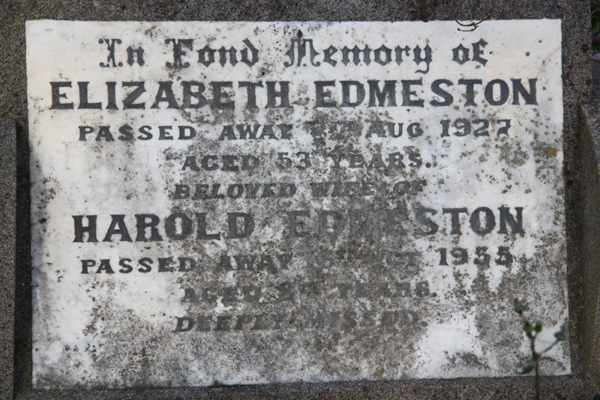 In Fond Memory of
ELIZABETH EDMESTON
PASSED AWAY AUG 1927
AGED 53 YEARS.
BELOVED WIFE OF
HAROLD EDMESTON
PASSED AWAY 1955
AGED YEARS.
DEEPLY MISSED.